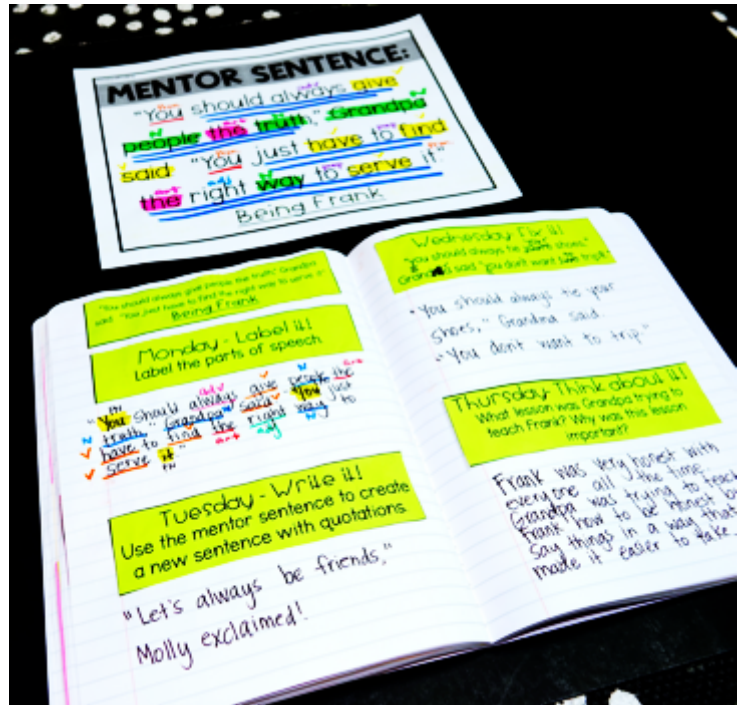 MENTOR SENTENCE:
"You should always give
people the truth," Grandpa
said. "You just have to find
the right way to serve it."
Being Frank
"You should always give people the truth," Grandpa
said. "You just have to find the right way to serve it."
Being Frank
Monday - Label it!
Label the parts of speech.
"You should always give people the
truth," Grandpa said. "You just
have to find the right way to
serve it."
Tuesday - Write it!
Use the mentor sentence to create
a new sentence with quotations.
"Let's always be friends,"
Molly exclaimed!
Wednesday - Fix it!
"you should always tie your shoes,"
said "you don't want trip!"
"You should always tie your
shoes," Grandma said.
"You don't want to trip"
Thursday - Think about it!
What lesson was Grandpa trying to
teach Frank? Why was this lesson
important?
Frank was very honest with
everyone all the time.
Grandpa was trying to teach
Frank how to be honest but
say things in a way that
made it easier to take.